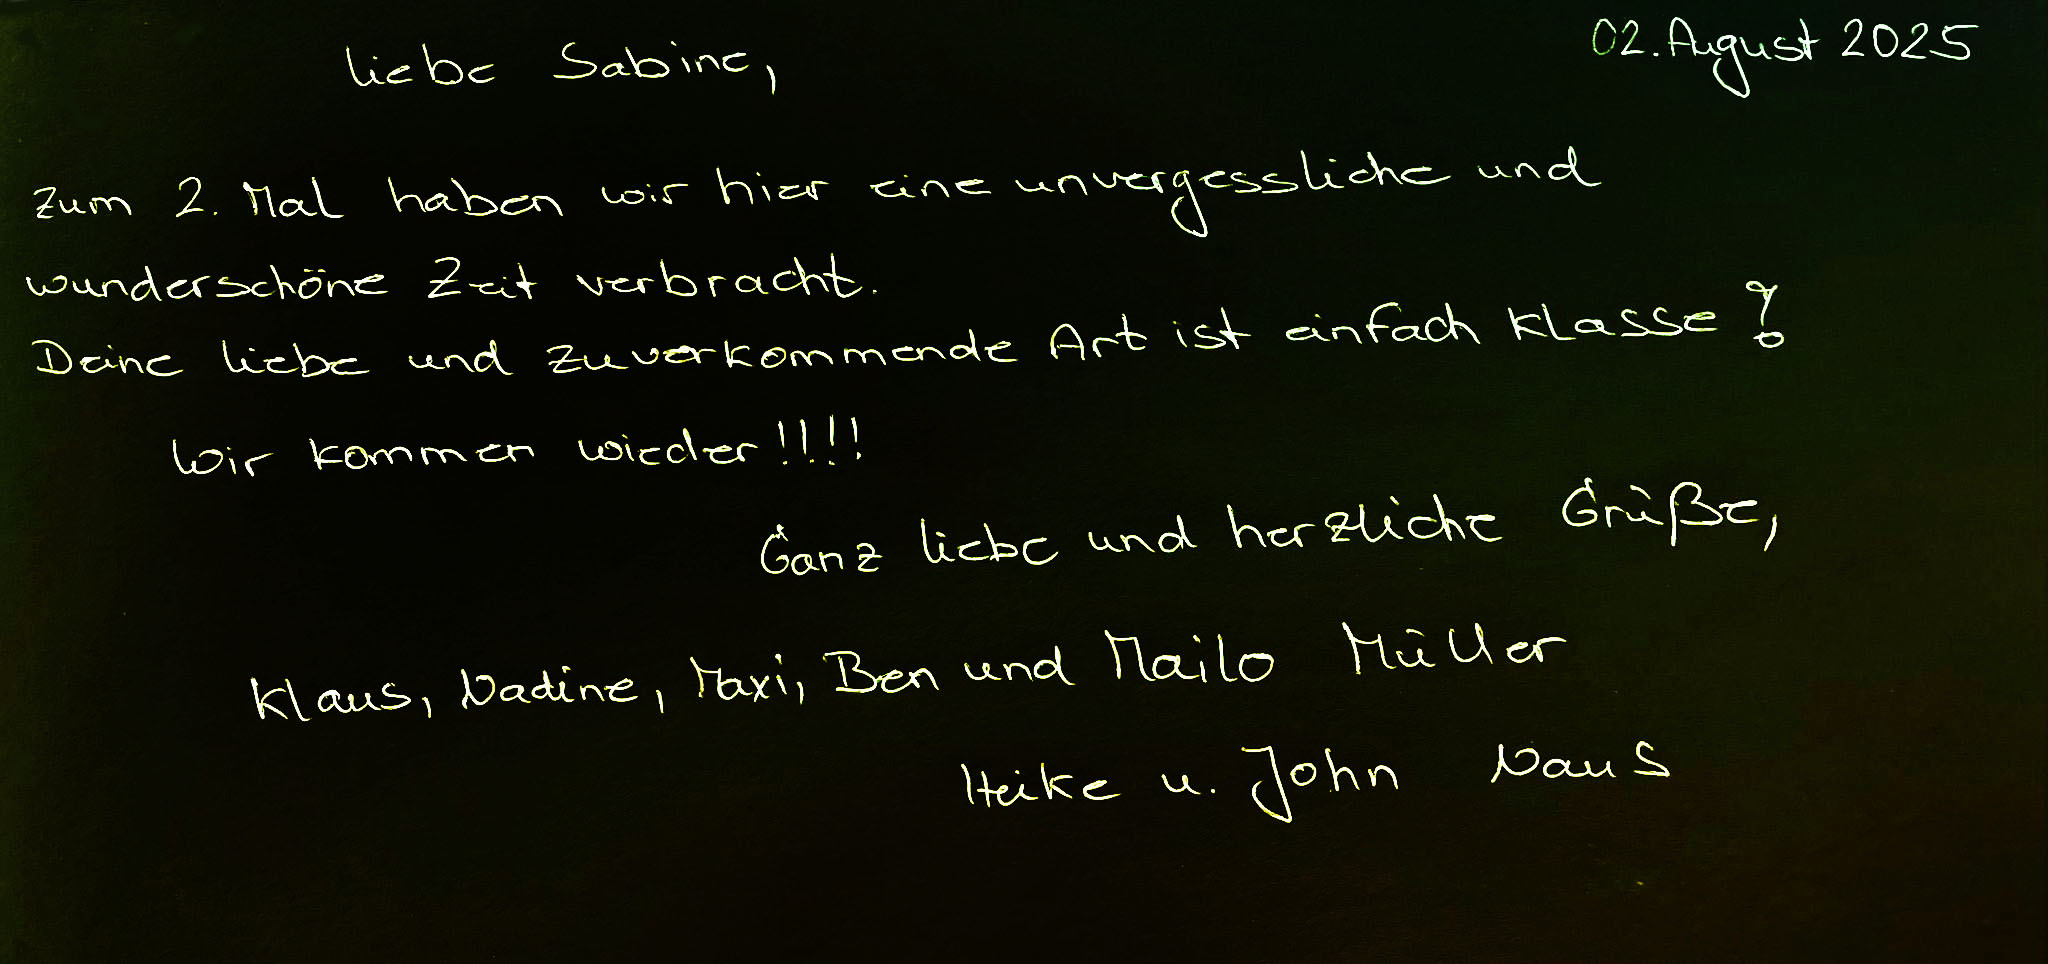 02. August 2025
Liebe Sabine,
Zum 2. Mal haben wir hier eine unvergessliche und
wunderschöne Zeit verbracht.
Deine liebe und zuverkommende Art ist einfach Klasse!
Wir kommen wieder!!!!
Ganz liebe und herzliche Grüße,
Klaus, Nadine, Maxi, Ben und Mailo Müller
Heike u. John Naus